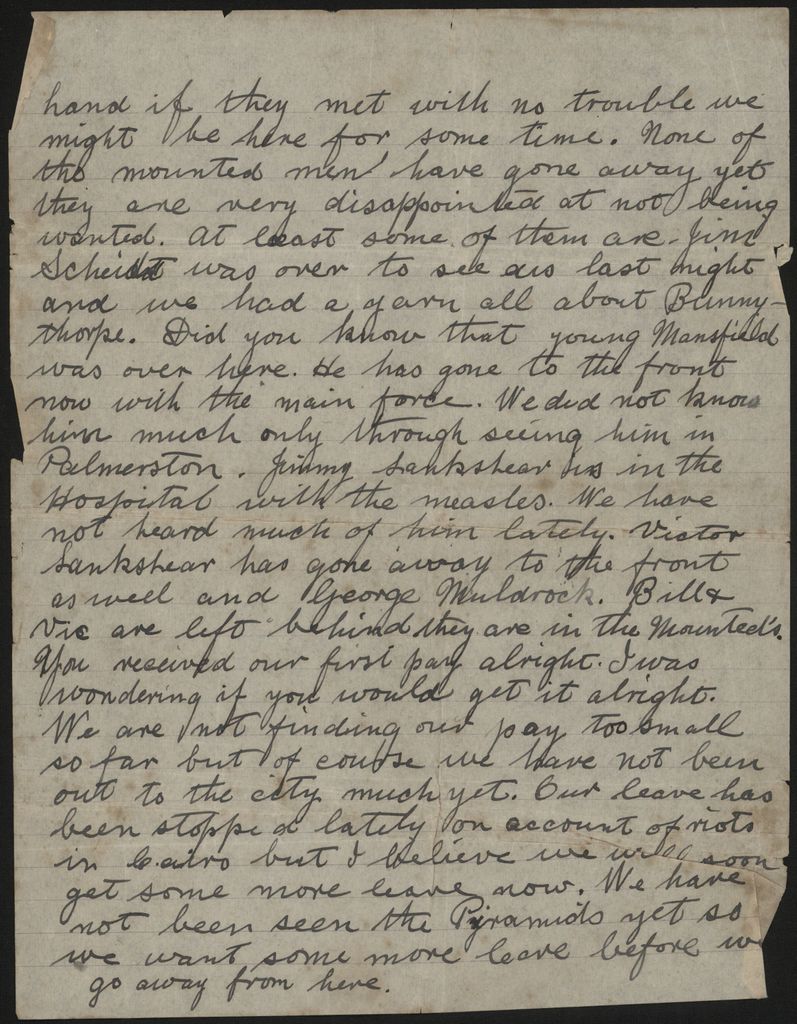 hand if they met with no trouble we
might be here for some time. None of
the mounted men have gone away yet
they are very disappointed at not being
wanted. At least some of them are. Jim
Scheidt was over to see us last night
and we had a yarn all about Bunny-
thorpe. Did you know that young Mansfield
was over here. He has gone to the front
now with the main force. We did not know
him much only through seeing him in
Palmerston. Jimmy Sankshear is in the
Hospital with the measles. We have
not heard much of him lately. Victor
Sankshear has gone away to the front
as well and George Muldrock. Bill &
Vic are left behind they are in the Mounted's.
You received our first pay alright. I was
wondering if you would get it alright.
We are not finding our pay too small
so far but of course we have not been
out to the city much yet. Our leave has
been stopped lately on account of riots
in Cairo but I believe we will soon
get some more leave now. We have
not been seen the Pyramids yet so
we want some more leave before we
go away from here.